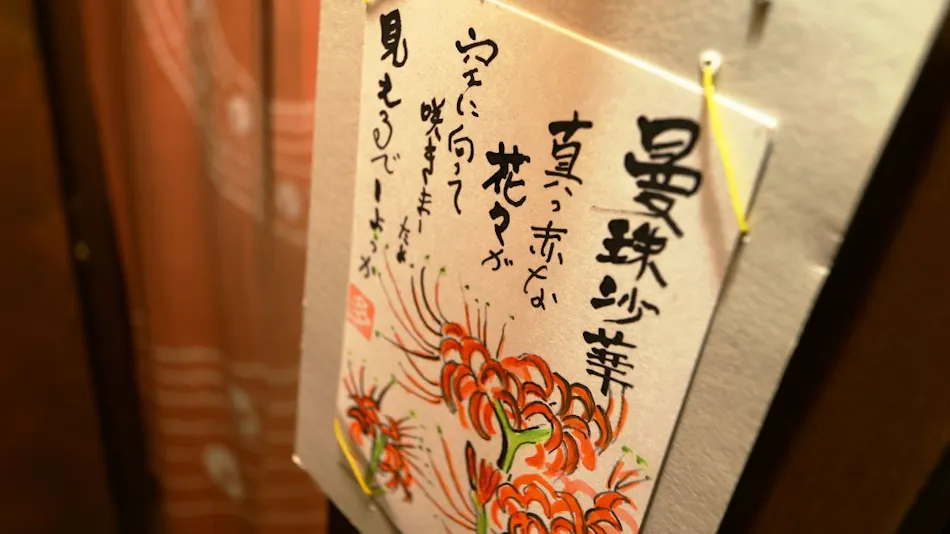 曼珠沙華
真っ赤な
花々が
空に向って
咲きました。
見もるでしょうか